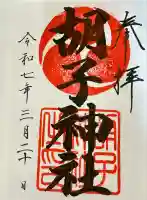 奉拝
胡子神社
令和七年三月二十日